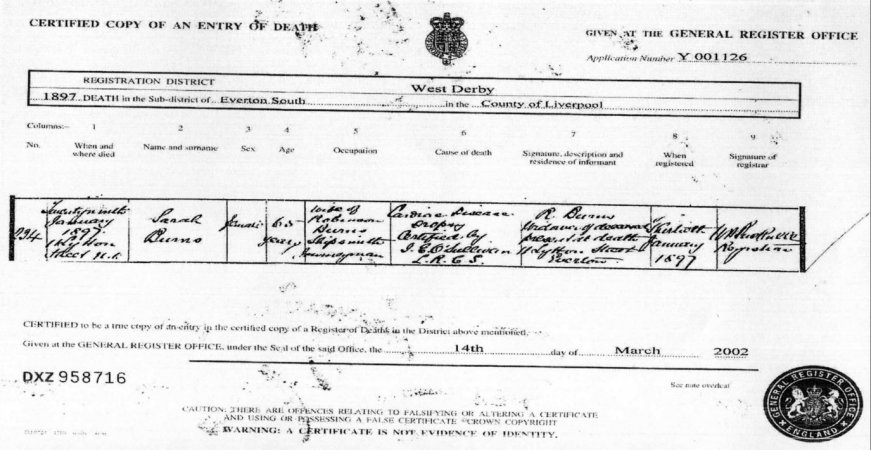 CERTIFIED COPY OF AN ENTRY OF DEATH
GIVEN AT THE GENERAL REGISTER OFFICE
Application Number Y 001126
REGISTRATION DISTRICT West Derby
1897 DEATH in the Sub-district of Everton South in the County of Liverpool
Columns:- 1 2 3 4 5 6 7 8 9
No. When and where died Name and surname Sex Age Occupation Cause of death Signature, description and residence of informant When registered Signature of registrar
Twenty ninth
January
1897
Street
Sarah
Burns
Female
65
years
Wife of
Robinson
Burns
Shipsmith
Journeyman
Cardiac Disease
Dropsy
Certified by
R. Burns
Widower of deceased
Present at death
Street
Everton
Thirtieth
January
1897
Registrar
CERTIFIED to be a true copy of an entry in the certified copy of a Register of Deaths in the District above mentioned.
Given at the GENERAL REGISTER OFFICE, under the Seal of the said Office, the 14th day of March 2002
DXZ 958716
See note overleaf
CAUTION: THERE ARE OFFENCES RELATING TO FALSIFYING OR ALTERING A CERTIFICATE
AND USING OR POSSESSING A FALSE CERTIFICATE ©CROWN COPYRIGHT
WARNING: A CERTIFICATE IS NOT EVIDENCE OF IDENTITY.
GENERAL REGISTER OFFICE
ENGLAND